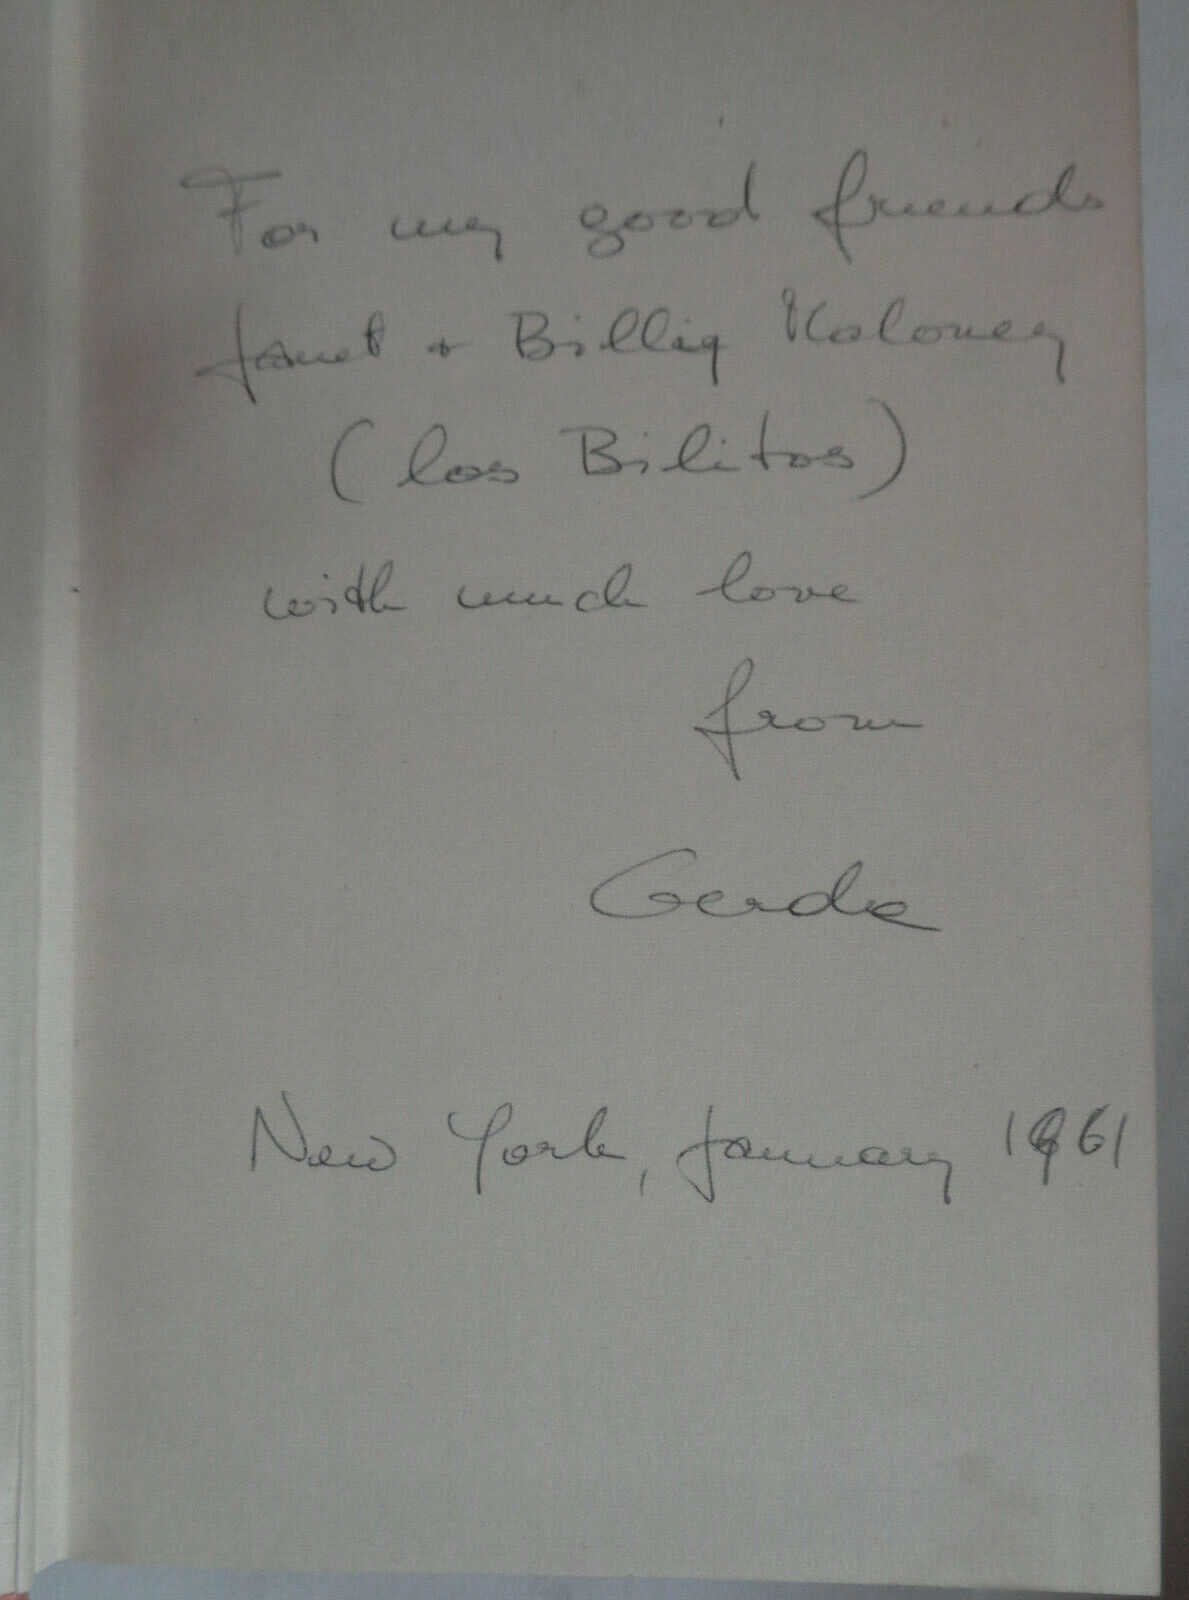 For my good friends
Janet + Billy Maloney
(los Bilitos)
with much love
from
Gerda
New York, January 1961